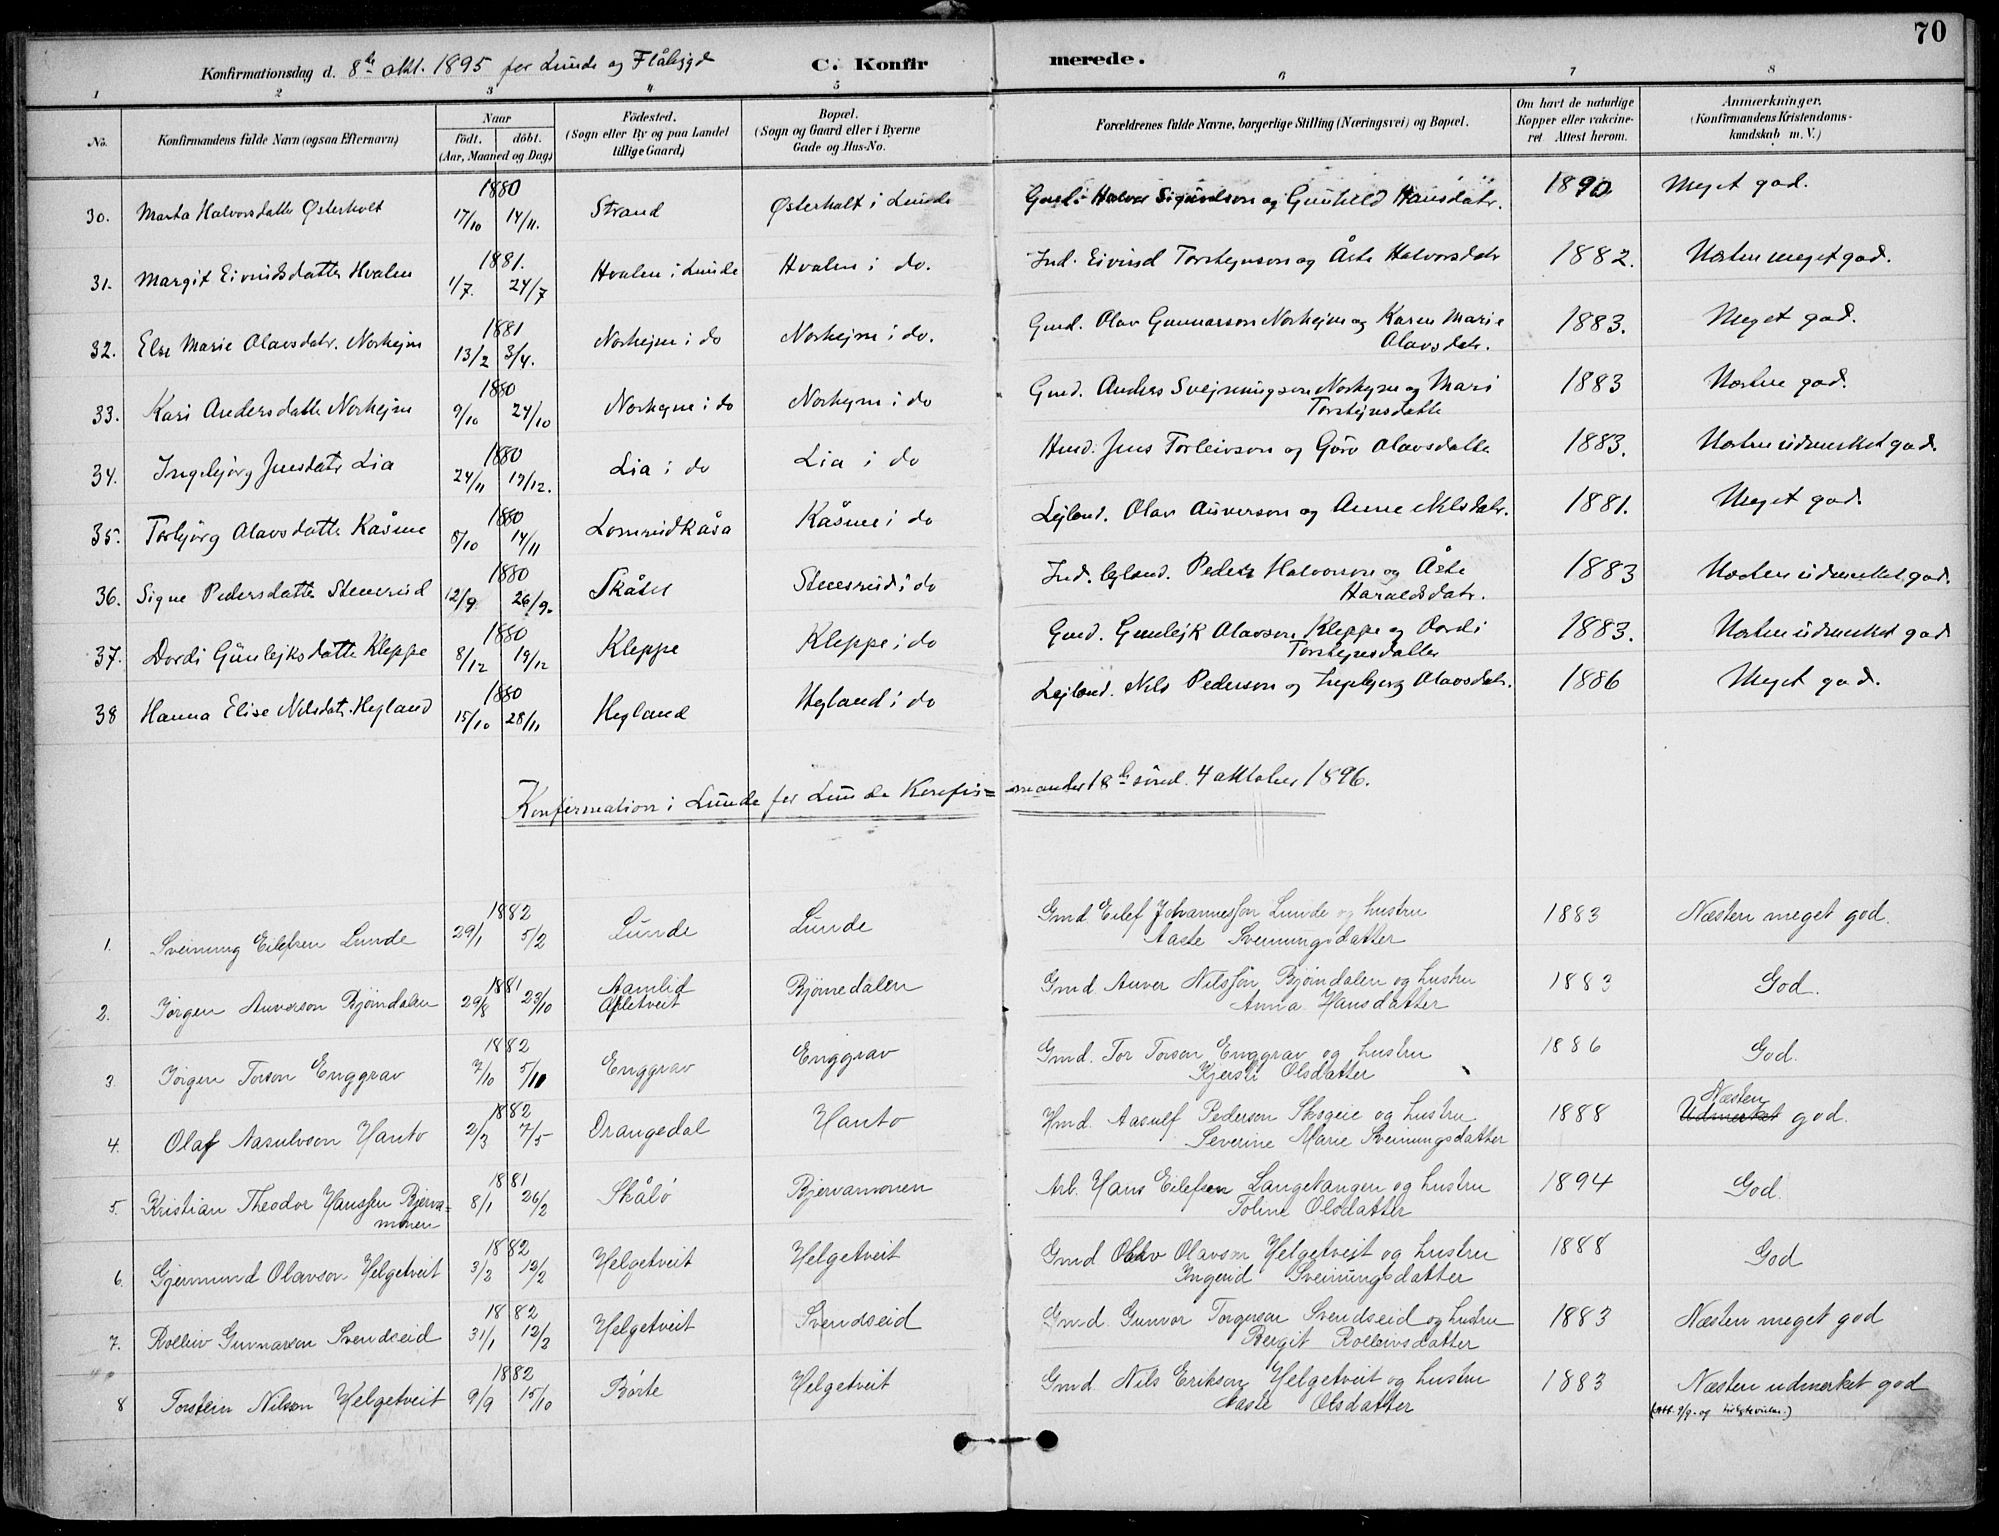 70
Konfirmationsdag d. 8de okt. 1895 for Lunde og Flåbygd C. Konfirmerede.
1 2 3 4 5 6 7 8
No. Konfirmandens fulde Navn (ogsaa Efternavn) Naar født. døbt. (Aar, Maaned og Dag) Födested. (Sogn eller By og paa Landet tillige Gaard) Bopæl. (Sogn og Gaard eller i Byerne Gade og Hus-No. Forældrenes fulde Navne, borgerlige Stilling (Næringsvei) og Bopæl. Om havt de naturlige Kopper eller vakcineret Attest herom. Anmærkninger. (Konfirmandens Kristendomskundskab m. V.)
30. Marta Halvorsdatte Østerholt 1880 17/10 14/11. Strand Østerholt i Lunde Gmd. Halvor Sigurdson og Gunhild Hansdatr. 1890 Meget god.
31. Margit Eivindsdatte Hvalen 1881. 1/7. 24/7 Hvalen i Lunde Hvalen i do. Ind. Eivind Torstejnson og Åste Halvorsdatr 1882. Næsten meget god.
32. Else Marie Olavsdatr. Norhejm 1881 13/2 3/4. Norhejm i do Norhejm i do. Gmd. Olav Gunnarson Norhejm og Karen Marie
Olavsdatr. 1883. Meget god.
33. Kari Andersdatte Norhejm 1880 9/10 24/10 Norhejm i do Norhejm i do Gmd. Anders Svejnungson Norhejm og Mari
Torstejnsdatte 1883 Næsten god.
34. Ingebjörg Jensdatr Lia 1880 24/11 17/12. Lia i do Lia i do Husd. Jens Torleivson og Gürö Olavsdatte 1883. Næsten udmerket god.
35. Torbjörg Olavsdatte Kåsene 1880 8/10 14/11 Lomrudkåsa Kåsene i do Lejlend. Olav Auverson og Anne Nilsdatr. 1881. Meget god.
36. Signe Pedersdatte Stenerud 1880 12/9 26/9. Skåtet Stensrud i do Ind. lejlænd. Peder Halvorson og Åste
Haraldsdatr. 1883 Næsten udmerket god.
37. Dordi Gunlejksdatte Kleppe 1880 8/12 19/12 Kleppe Kleppe i do Gmd. Gunlejk Olavson Kleppe og Dordi
Torstejnsdatte 1883. Næsten udmerket god
38 Hanna Elise Nilsdatr. Hejland 1880 15/10 28/11 Hejland Hejland i do Lejlænd. Nils Pederson og Ingebjorg Olavsdatr. 1886 Meget god.
Konfirmation i Lunde for Lunde Konfir=mander 18de sönd. 4 oktober 1896.
1. Sveinung Eilefsen Lunde 1882 29/1 5/2 Lunde Lunde Gmd Eilef Johannessön Lunde og hustru
Aaste Sveinungsdatter 1883 Næsten meget god.
2. Jørgen Auverson Bjørndalen 1881 29/8 23/10 Aamlid
Apletveit Bjørnedalen Gmd Auver Nilssön Bjørndalen og hustru
Anna Hansdatter 1883 God.
3. Jørgen Torson Enggrav 1882 7/10 5/11 Enggrav Enggrav Gmd. Tor Torson Enggrav og hustru
Kjersti Olsdatter 1886 God.
4. Olaf Aasulvson Hanto 1882 2/3 7/5 Drangedal Hanto Hmd. Aasulf Pederson Skogeie og hustru
Severine Marie Sveinungsdatter 1888 Næsten
Udmerket god.
5. Kristian Theodor Hanssen Bjerva=
monen 1881 8/1 26/2 Skålö Bjervamonen Arb. Hans Eilefsen Langetangen og hustru
Toline Olsdatter 1894 God.
6. Gjermund Olavson Helgetveit 1882 3/2 12/2 Helgetveit Helgetveit Gmd Olav Olavson Helgetveit og hustru
Ingerid Sveinungsdatter 1888 God
7. Rolleiv Gunnarson Svendseid 1882 31/1 12/2 Helgetveit Svendseid Gmd. Gunnar Torgerson Svendseid og hustru
Bergit Rolleivsdatter 1883 Næsten meget god
8 Torstein Nilson Helgetveit 1882 9/9 15/10 Børte Helgetveit Gmd. Nils Erikson Helgetveit og hustru
Aaste Olsdatter 1883 Næsten udmerket god